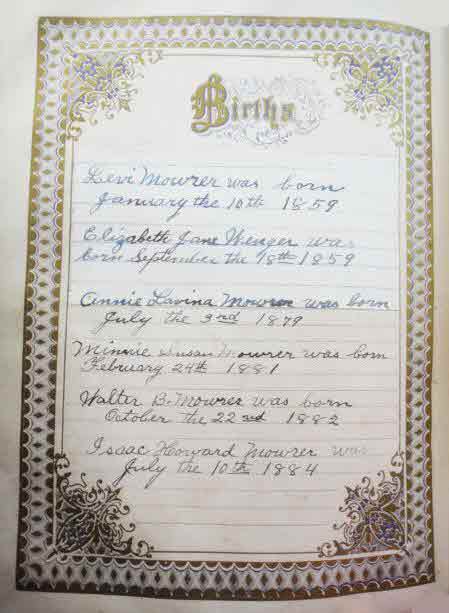 Births
Levi Mowrer was born
January the 10th 1859
Elizabeth Jane Wenger was
born September the 18th 1859
Annie Lavina Mowrer was born
July the 3rd 1879
Minnie Susan Mowrer was born
February 24th 1881
Walter B. Mowrer was born
October the 22nd 1882
Isaac Howard Mowrer was
July the 10th 1884